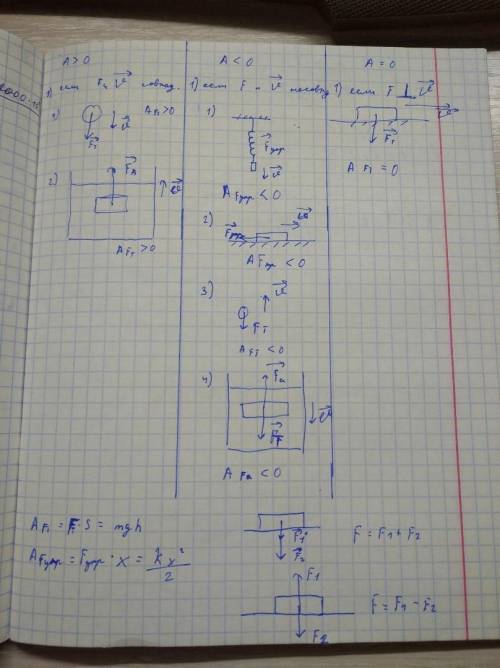 A > 0
1) если F и V совпад.
1)
A Fт > 0
V
Fт
2)
FA
V
A Fт > 0
A < 0
1) если F и V несовпад
1)
Fупр
V
A Fупр < 0
2)
V
A Fтр < 0
3)
V
Fт
A Fт < 0
4)
Fа
Fт
V
A Fа < 0
A = 0
1) если F ⊥ V
V
Fт
A Fт = 0
A Fт = F · S = mgh
A Fупр = Fупр · x = kx²/2
F1
F2
F = F1 + F2
F1
F2
F = F1 - F2